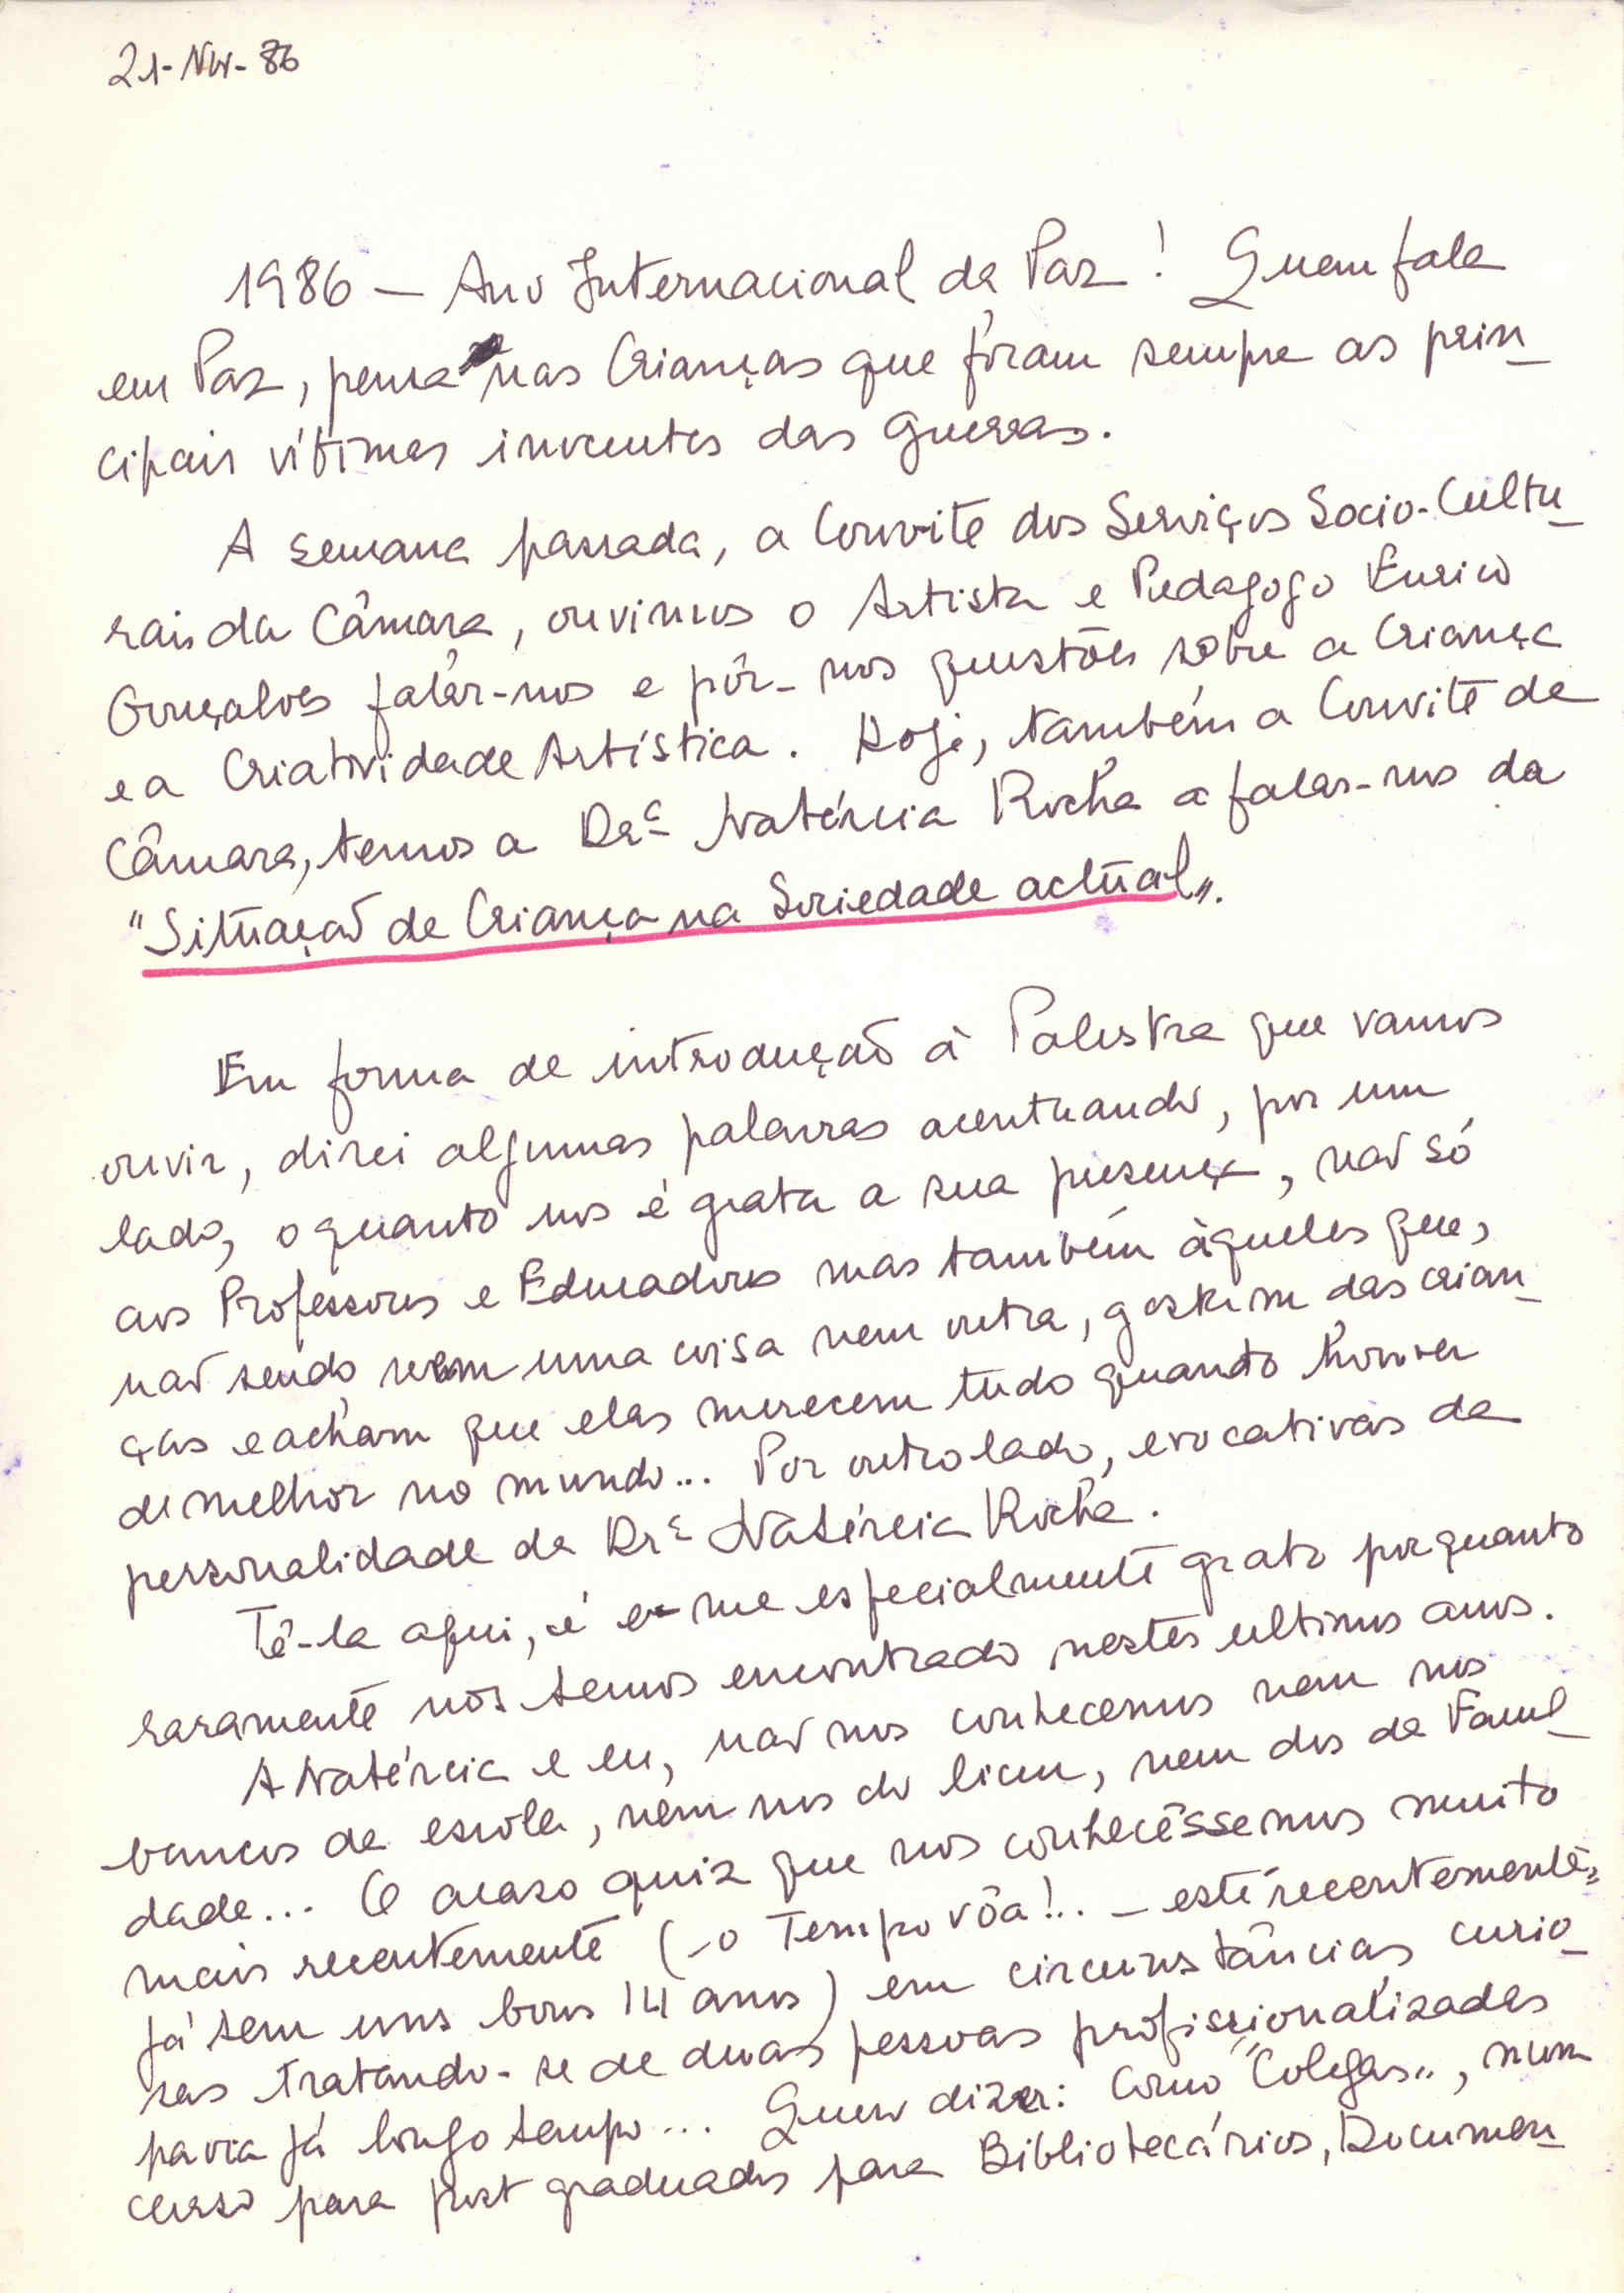 21-Nov-86
1986 — Ano Internacional da Paz! Quem fala
em Paz, pensa nas Crianças que fôram sempre as prin
cipais vítimas inocentes das guerras.
A semana passada, a Convite dos Serviços Socio-Cultu
rais da Câmara, ouvimos o Artista e Pedagogo Eurico
Gonçalves falar-nos e pôr-nos questões sobre a Criança
e a Criatividade Artística. Hoje, também a Convite da
Câmara, temos a Drª Natércia Rocha a falar-nos da
"Situação da Criança na Sociedade actual".
Em forma de introdução à Palestra que vamos
ouvir, direi algumas palavras acentuando, por um
lado, o quanto nos é grata a sua presença, não só
aos Professores e Educadores mas também àqueles que,
não sendo nem uma coisa nem outra, gostem das crian
ças e acham que elas merecem tudo quanto houver
de melhor no mundo... Por outro lado, evocativas da
personalidade da Drª Natércia Rocha.
Tê-la aqui, é-me especialmente grato porquanto
raramente nos temos encontrado nestes ultimos anos.
A Natércia e eu, não nos conhecemos nem nos
bancos da escola, nem nos do liceu, nem dos da Facul
dade... O acaso quiz que nos conhecêssemos muito
mais recentemente (-o Tempo vôa!.. - este "recentemente"
já tem uns bons 14 anos) em circunstâncias curio
sas tratando-se de duas pessoas profissionalizadas
havia já longo tempo... Quero dizer: Como "Colegas", num
curso para post graduados para Bibliotecários, Documen